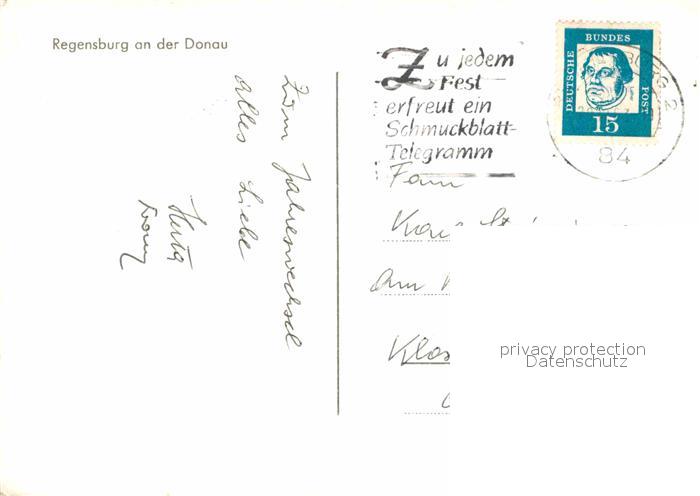 Regensburg an der Donau
Zum Jahreswechsel
alles Liebe
Herta
Zu jedem
Fest
erfreut ein
Schmuckblatt-
Telegramm
DEUTSCHE
BUNDES
POST
15
84
Fam
Am
Klos
privacy protection
Datenschutz